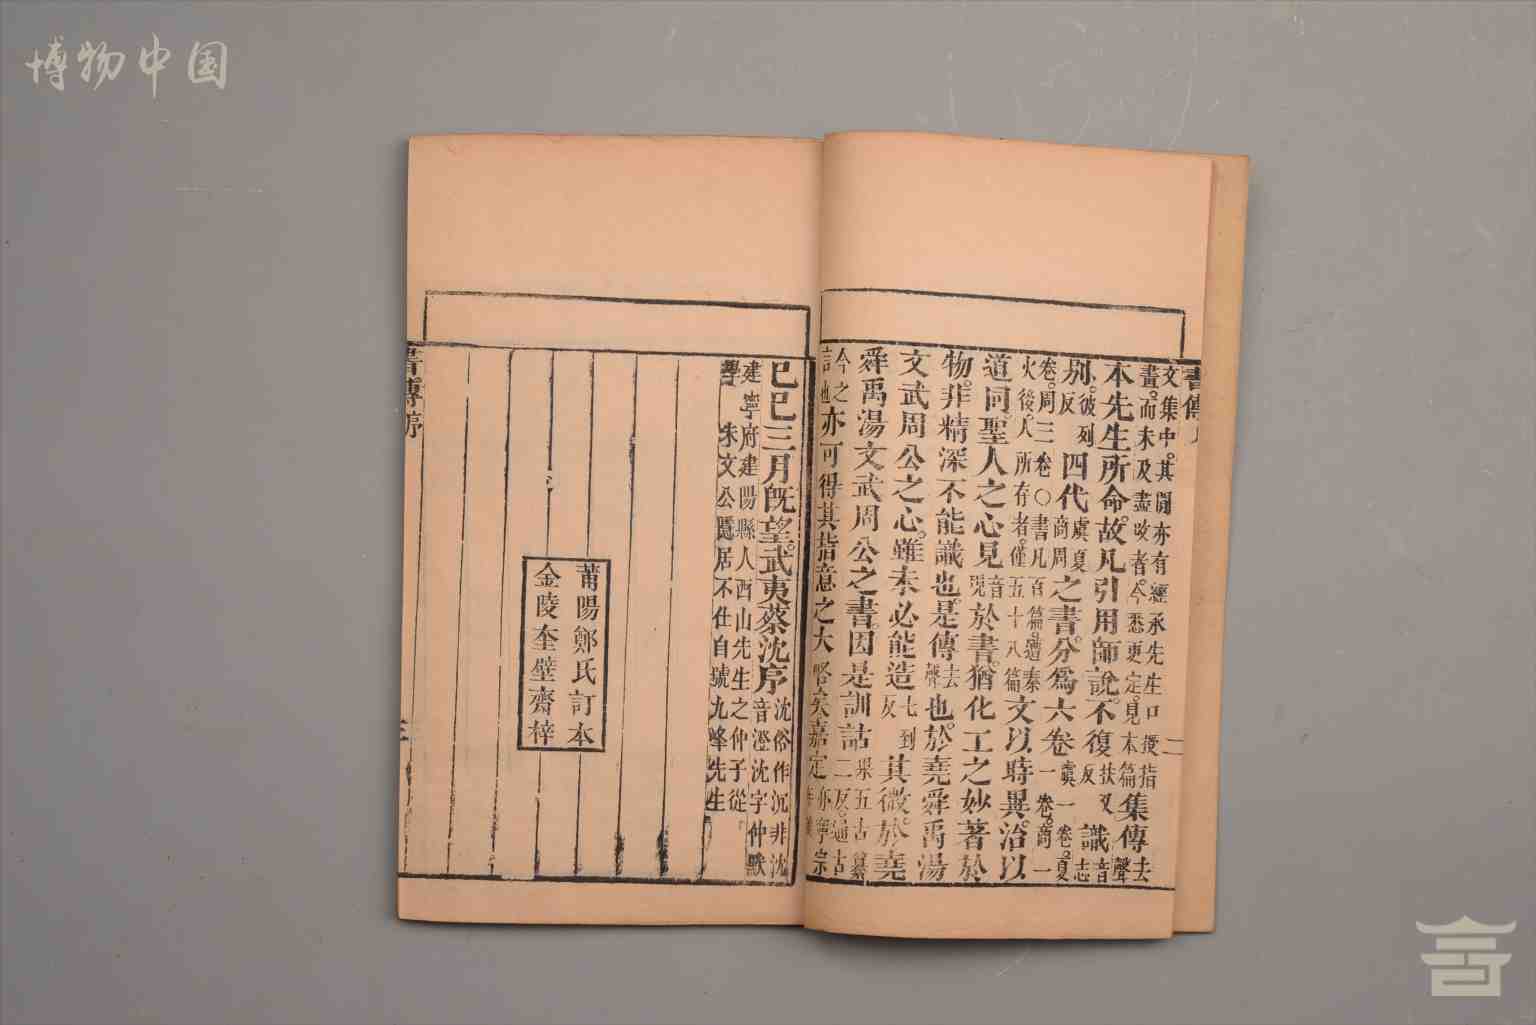 書傳
二
文集中。其間亦有經承先生口授指畫。而未及盡改者。今悉更定。見本篇集傳去聲
本先生所命。故凡引用師說。不復扶又反識音志
別。彼列反四代虞夏商周之書。分為六卷虞一卷。夏一卷。商一
卷。周三卷。○書凡百篇。遭秦火後。人所存者。僅五十八篇文以時異。治以
道同。聖人之心見音現於書。猶化工之妙著於
物。非精深不能識也。是傳去聲也。於堯舜禹湯
文武周公之心。雖未必能造七到反其微。於堯
舜禹湯文武周公之書。因是訓詁果五古慕二反。通古
今之言也亦可得其指意之大略矣。嘉定亦寧宗年號
己巳三月既望。武夷蔡沈序沈俗作沉非沈音澄沈字仲默
建寧府建陽縣人西山先生之仲子從
學朱文公隱居不仕自號九峰先生
莆陽鄭氏訂本
金陵奎壁齋梓
書傳序
三
博物中国